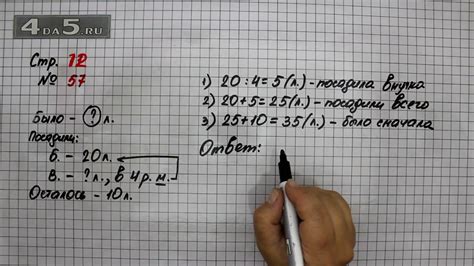 4DA5.RU
Стр. 12
№ 57
Было - ? л.
Посадили:
Б. - 20 л.
В. - ? л., в 4 р. м.
Осталось - 10 л.
1) 20 : 4 = 5 (л.) - посадила внучка
2) 20 + 5 = 25 (л.) - посадили всего
3) 25 + 10 = 35 (л.) - было сначала
Ответ: